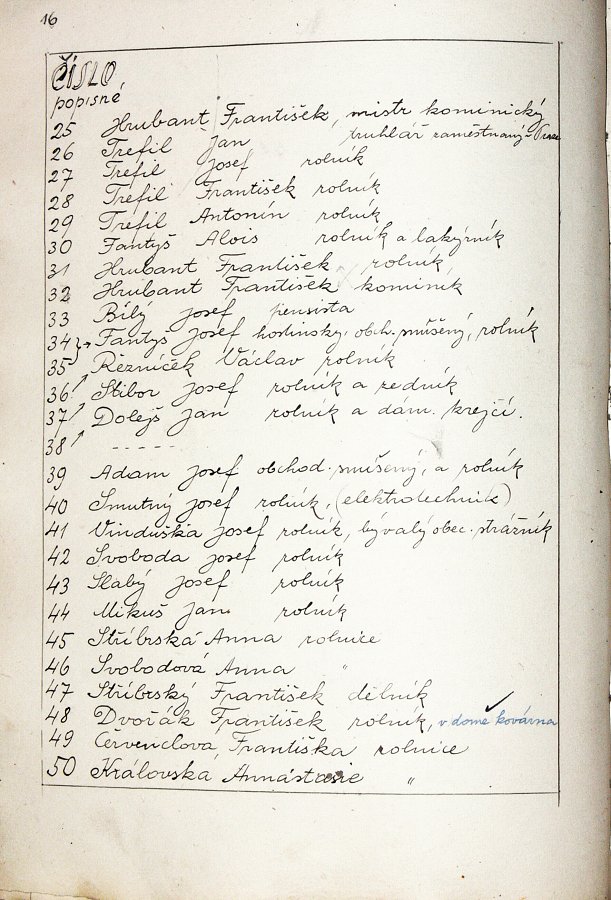 16
ČÍSLO
popisné
25 Hrubant František, mistr kominický
26 Trefil Jan truhlář zaměstnaný - Praze
27 Trefil Josef rolník
28 Trefil František rolník
29 Trefil Antonín rolník
30 Fantyš Alois rolník a lakýrník
31 Hrubant František rolník
32 Hrubant František kominík
33 Bílý Josef pensista
34 Fantyš Josef hostinský, obch. smíšený, rolník
35 Řezníček Václav rolník
36 Stibor Josef rolník a řezník
37 Dolejš Jan rolník a dám. krejčí.
38 - - - - - -
39 Adam Josef obchod. smíšený, a rolník
40 Smutný Josef rolník, (elektrotechnik)
41 Vinduška Josef rolník, bývalý obec. strážník
42 Svoboda Josef rolník
43 Slabý Josef rolník
44 Mikuš Jan rolník
45 Stříbrská Anna rolnice
46 Svobodová Anna "
47 Stříbrský František dělník
48 Dvořák František rolník, v domě kovárna
49 Červenclova, Františka rolnice
50 Královska, Annastasie "